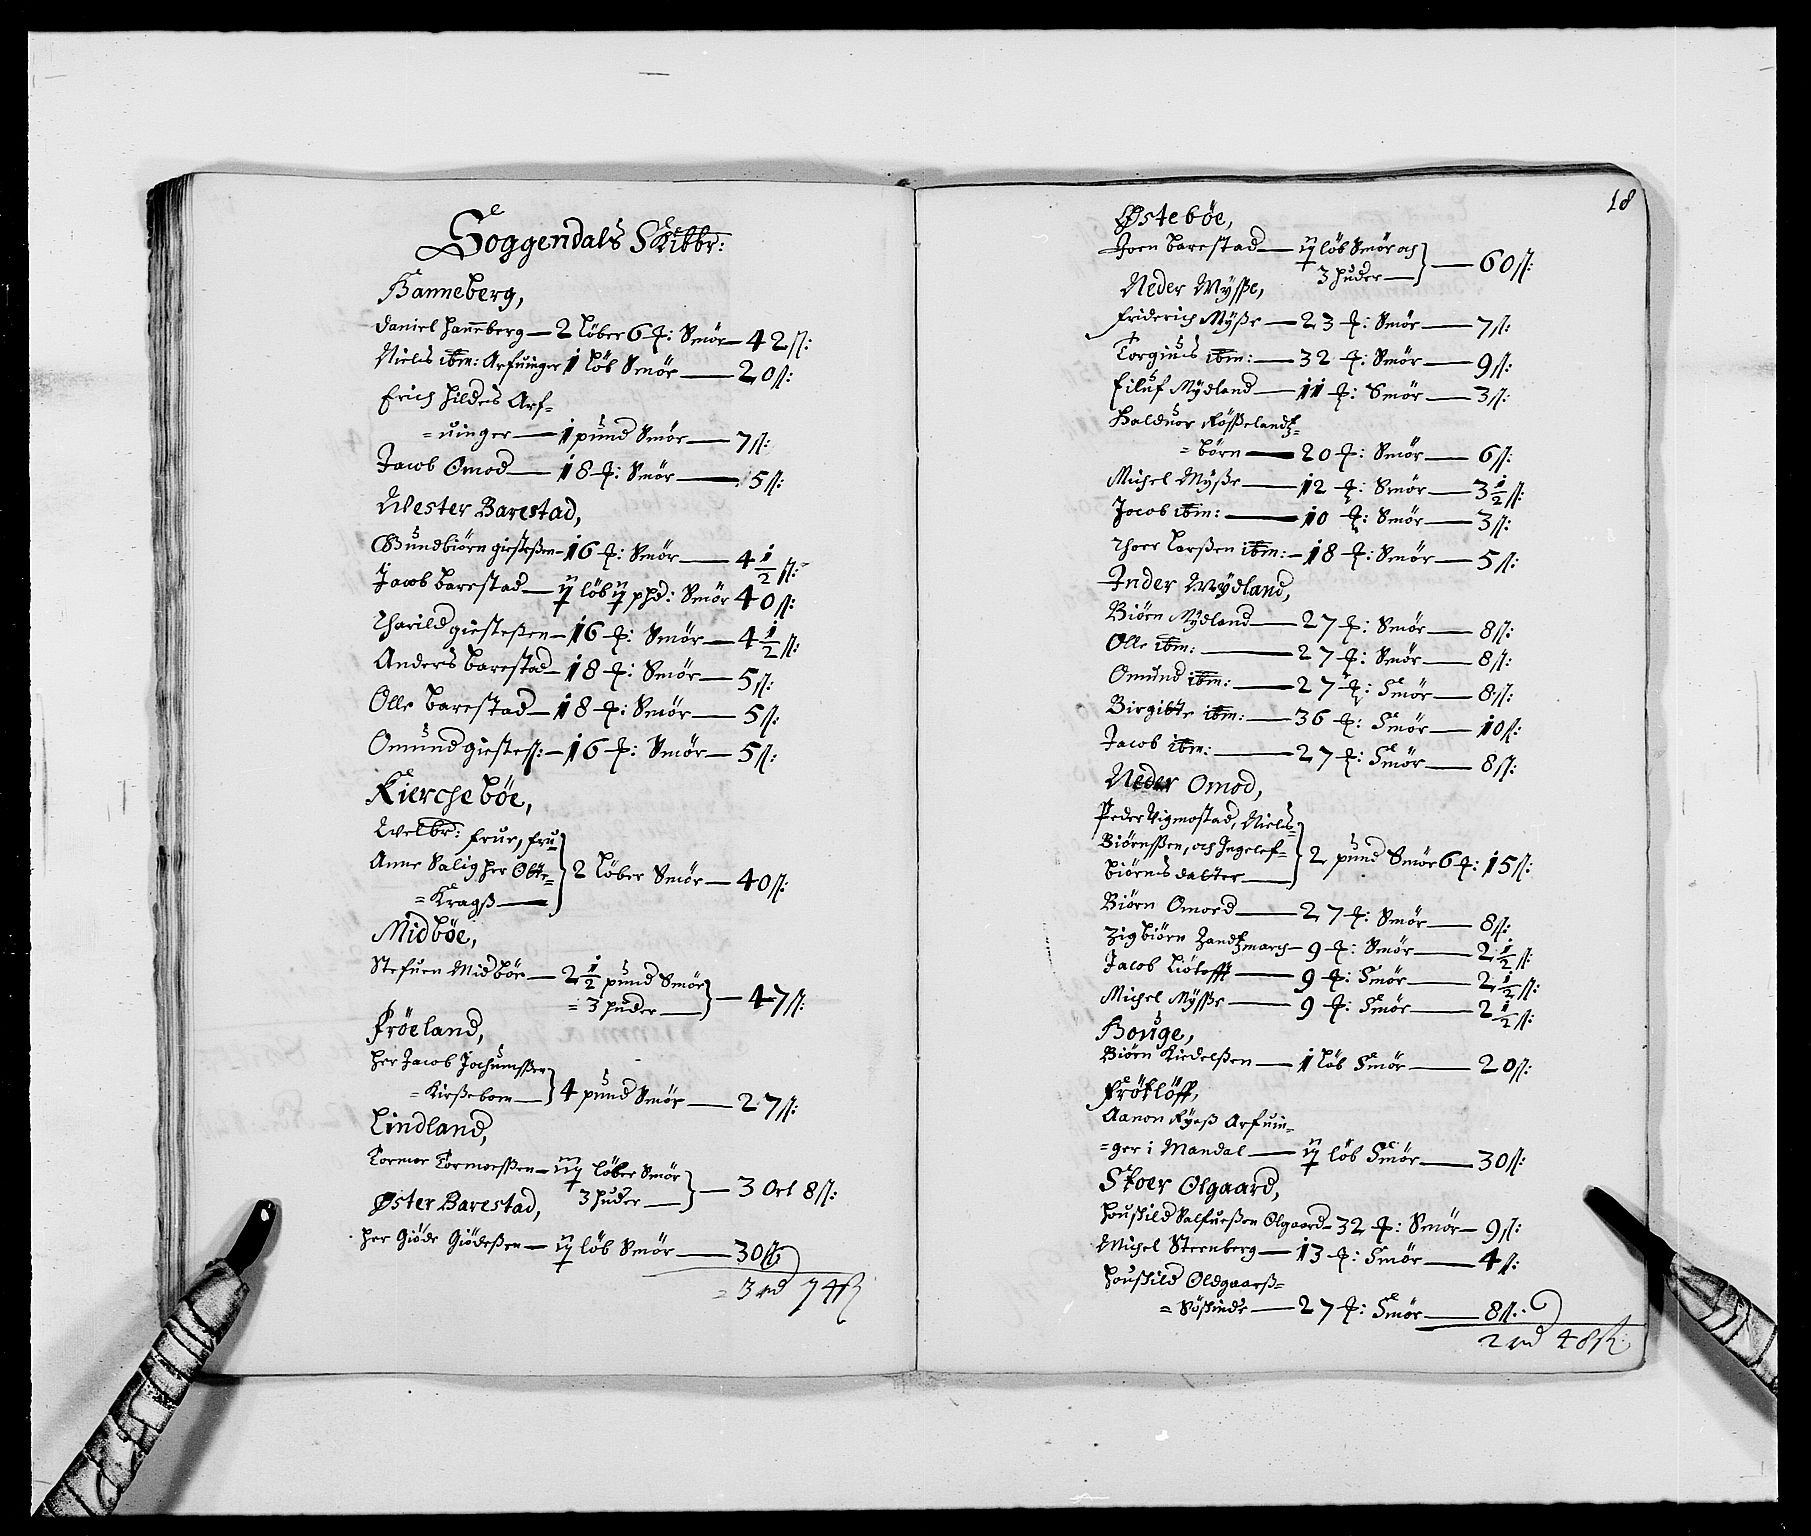 Soggendals Skibbr:
Hanneberg,
Daniel Hanneberg — 2 Löber 6 ℔: Smör — 42 ß:
Niels ibm: Arfuinger 1 Löb Smör — 20 ß:
Erich Hildes Arf=
=uinger — 1 pund Smör — 7 ß:
Jacob Omod — 18 ℔: Smör — 5 ß:
Wester Barestad,
Gundbiörn giestesßen — 16 ℔: Smör — 4 1/2 ß:
Jacob Barestad — löb phd: Smör 40 ß:
Tharild giestesßen — 16 ℔: Smör — 4 1/2 ß:
Anders Barestad — 18 ℔: Smör — 5 ß:
Olle Barestad — 18 ℔: Smör — 5 ß:
Omund giestesß: — 16 ℔: Smör — 5 ß:
Kiercheböe,
Welbr: frue, fru
Anne Salig her Otte=
=Kragß — 2 Löber Smör — 40 ß:
Midböe,
Stefuen Midböe — 2 1/2 pund Smör
= 3 huder — 47 ß:
Fröeland,
Her Jacob Jochumsßen
=Kirßebom — 4 pund Smör — 27 ß:
Lindland,
Tormor Tormoesßen — löber Smör
3 huder — 3 Ort 8 ß:
Øster Barestad,
Her Giöde Giödesßen — löb Smör — 30 ß:
= 3 rd 74 ß
18
Østeböe,
Joen Barestad — löb Smör och
3 huder — 60 ß:
Neder Mysße,
Friderich Myße — 23 ℔: Smör — 7 ß:
Torgius ibm: — 32 ℔: Smör — 9 ß:
Eiluf Mydland — 11 ℔: Smör — 3 ß:
Halduor Rösßelandtz=
=börn — 20 ℔: Smör — 6 ß:
Michel Myße — 12 ℔: Smör — 3 1/2 ß:
Jocob ibm: — 10 ℔: Smör — 3 ß:
Thoer Larsßen ibm: — 18 ℔: Smör — 5 ß:
Inder Mydland,
Biörn Mydland — 27 ℔: Smör — 8 ß:
Olle ibm: — 27 ℔: Smör — 8 ß:
Omund ibm: — 27 ℔: Smör — 8 ß:
Birgitte ibm: — 36 ℔: Smör — 10 ß:
Jacob ibm: — 27 ℔: Smör — 8 ß:
Neder Omod,
Peder Vigmostad, Niels=
Biörnsßen, och Ingelef=
biörns datter — 2 pund Smör 6 ℔: 15 ß:
Biörn Omord — 27 ℔: Smör — 8 ß:
Zigbiörn Zandtzmarch — 9 ℔: Smör — 2 1/2 ß:
Jacob Liötofft — 9 ℔: Smör — 2 1/2 ß:
Michel Mysße — 9 ℔: Smör — 2 1/2 ß:
Houge,
Biörn Kiedelsßen — 1 Löb Smör — 20 ß:
Frötlöff,
Aanon Ryeß Arfuin=
=ger i Mandal — löb Smör — 30 ß:
Stoer Olgaard,
Houskild Salfuesßen Olgaard — 32 ℔: Smör — 9 ß:
Michel Sternberg — 13 ℔: Smör — 4 ß:
Houskild Oldgaarß=
=Söskinde — 27 ℔: Smör — 8 ß:
2 rd 48 ß